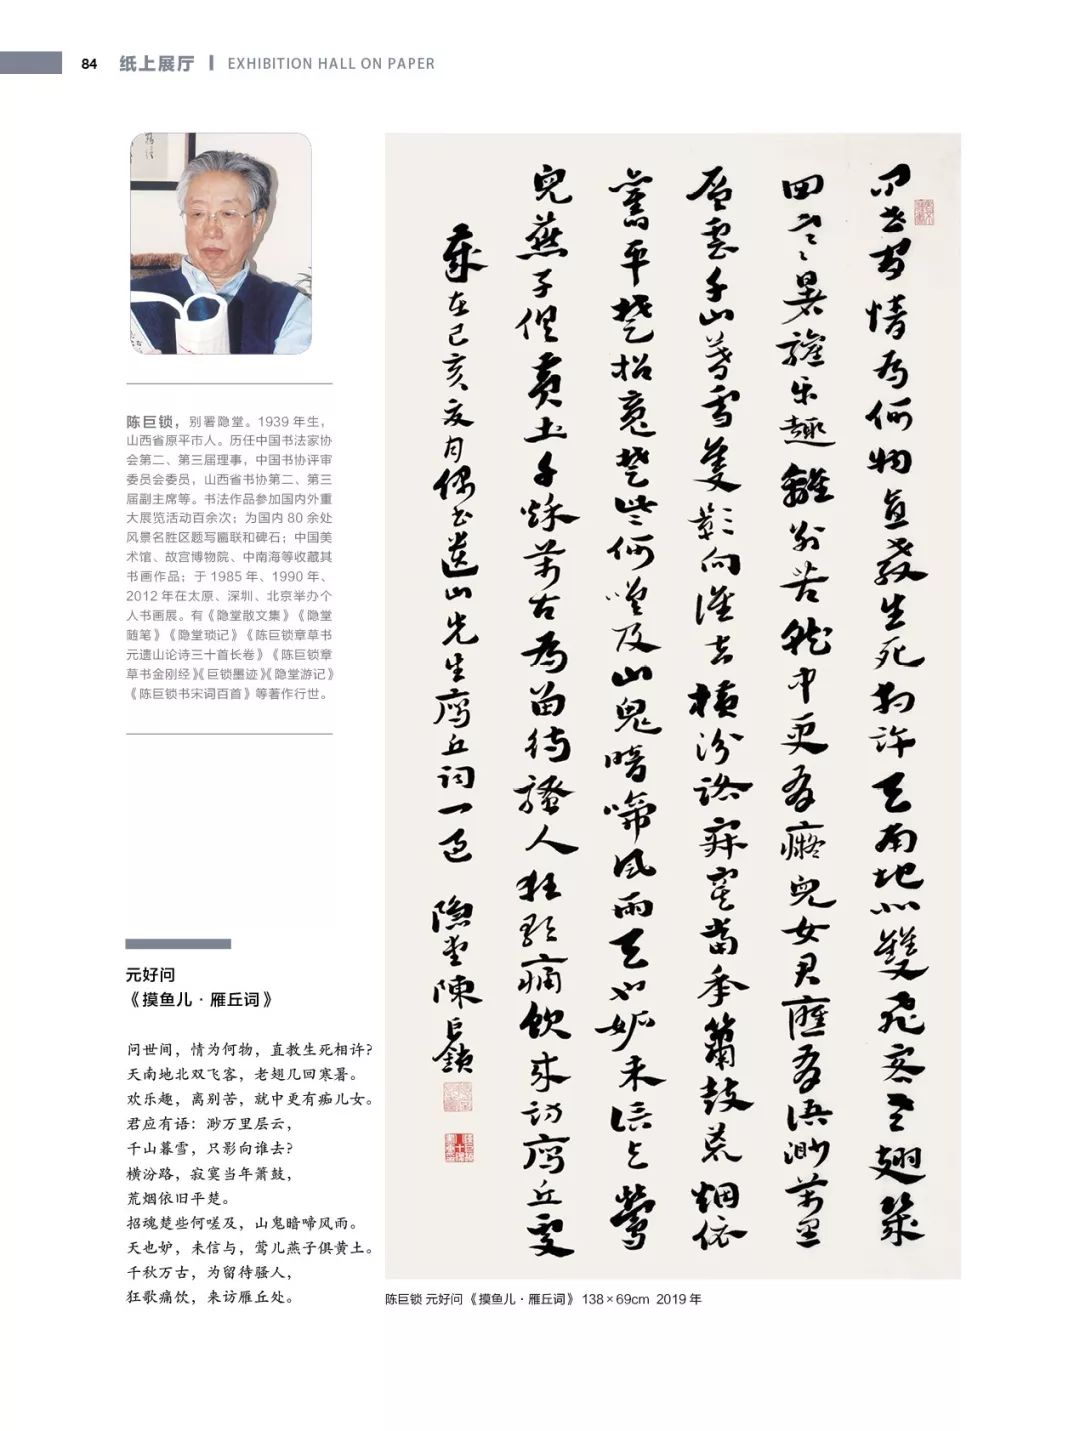 84 纸上展厅 | EXHIBITION HALL ON PAPER
陈巨锁，别署隐堂。1939 年生，
山西省原平市人。历任中国书法家协
会第二、第三届理事，中国书协评审
委员会委员，山西省书协第二、第三
届副主席等。书法作品参加国内外重
大展览活动百余次；为国内 80 余处
风景名胜区题写匾联和碑石；中国美
术馆、故宫博物院、中南海等收藏其
书画作品；于 1985 年、1990 年、
2012 年在太原、深圳、北京举办个
人书画展。有《隐堂散文集》《隐堂
随笔》《隐堂琐记》《陈巨锁章草书
元遗山论诗三十首长卷》《陈巨锁章
草书金刚经》《巨锁墨迹》《隐堂游记》
《陈巨锁书宋词百首》等著作行世。
元好问
《摸鱼儿·雁丘词》
问世间，情为何物，直教生死相许？
天南地北双飞客，老翅几回寒暑。
欢乐趣，离别苦，就中更有痴儿女。
君应有语：渺万里层云，
千山暮雪，只影向谁去？
横汾路，寂寞当年萧鼓，
荒烟依旧平楚。
招魂楚些何嗟及，山鬼暗啼风雨。
天也妒，未信与，莺儿燕子俱黄土。
千秋万古，为留待骚人，
狂歌痛饮，来访雁丘处。
问世間情為何物直教生死相許天南地北雙飛客老翅幾
回寒暑歡樂趣離別苦就中更有癡兒女君應有語渺萬里
層雲千山暮雪隻影向誰去橫汾路寂寞當年簫鼓荒烟依
舊平楚招魂楚些何嗟及山鬼暗啼風雨天也妒未信與鶯
兒燕子俱黃土千秋萬古為留待騷人狂歌痛飲來訪鴈丘處
歲在己亥夏月偶書遺山先生鴈丘詞一過 隱堂陳巨鎖
陈巨锁 元好问《摸鱼儿·雁丘词》 138×69cm 2019 年